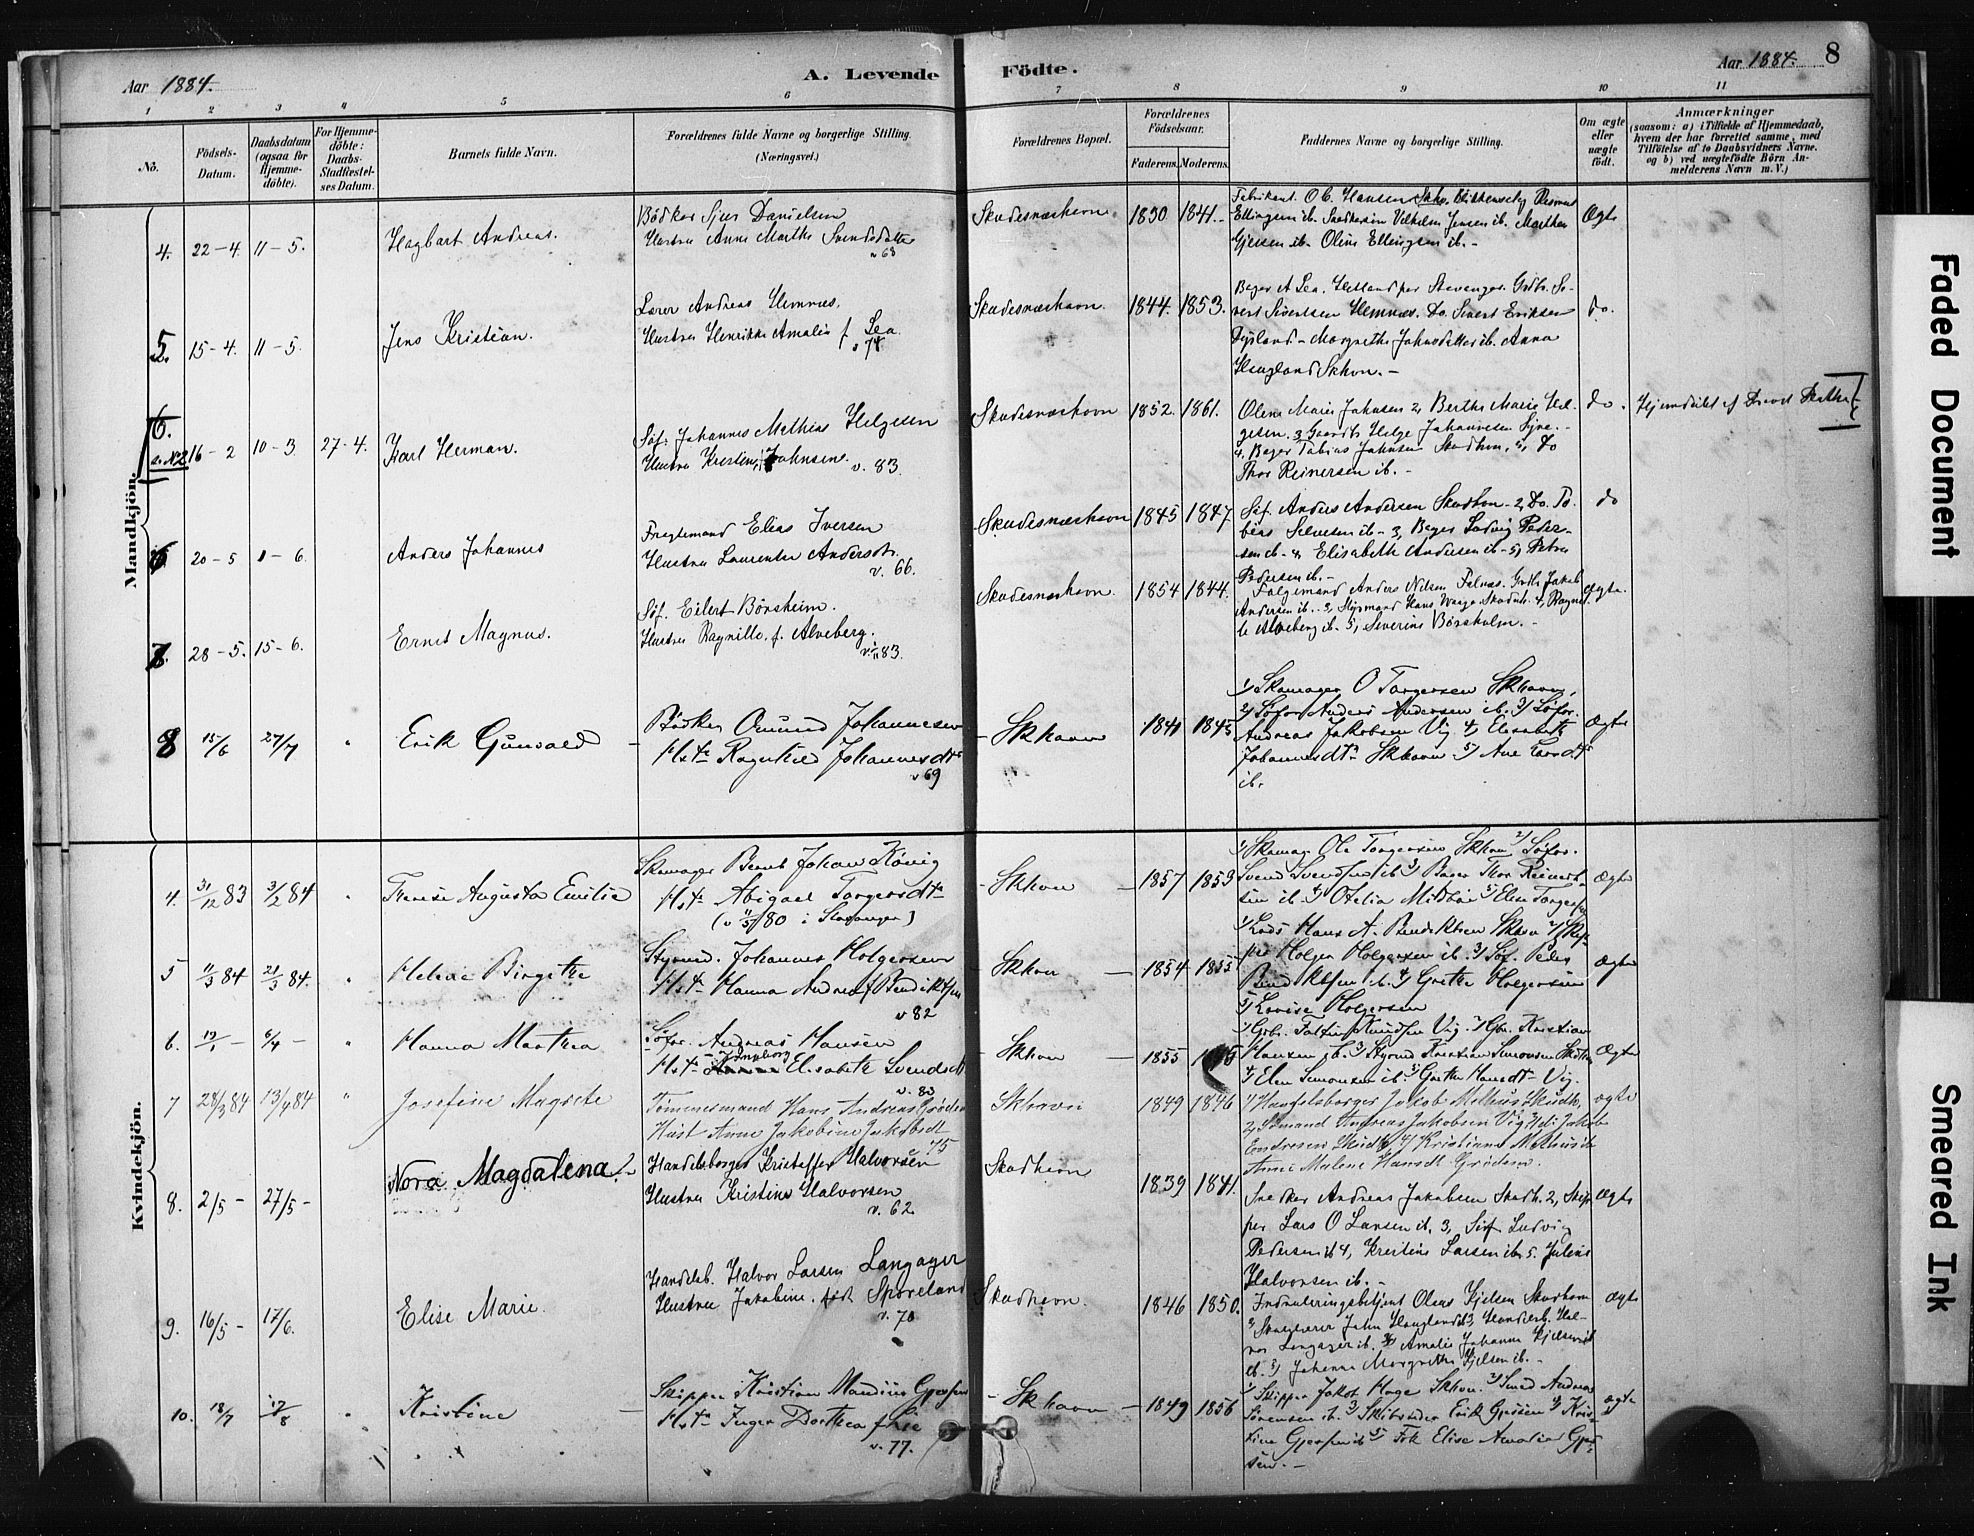 Aar 1884.
A. Levende Födte.
Aar 1884. 8
1 2 3 4 5 6 7 8 9 10 11
No.
Födsels-Datum.
Daabsdatum (ogsaa for Hjemme-döbte).
For Hjemme-döbte: Daabs-Stadfæstel-ses Datum.
Barnets fulde Navn.
Forældrenes fulde Navne og borgerlige Stilling.
(Næringsvei.)
Forældrenes Bopæl.
Forældrenes Födselsaar.
Faderens. Moderens.
Faddernes Navne og borgerlige Stilling.
Om ægte eller uægte födt.
Anmærkninger
(saasom: a) i Tilfælde af Hjemmedaab,
hvem der har forrettet samme, med
Tilföielse af to Daabsvidners Navne.
og b) ved uægtefödte Börn An-
melderens Navn m. V.)
Mandkjön.
4. 22-4. 11-5. Hagbart Andreas.
Bödker Sjur Danielsen
Hustru Anne Marthe Svendsdatter
v 63
Skudesnæshavn 1830 1841.
Fabrikant O C. Hansen Skhv.
Ellingsen ib. Vilhelm Jensen ib. Marthea
Gjersen ib. Oline Ellingsen ib. -
Ægte
5. 15-4. 11-5. Jens Kristian.
Lærer Andreas Hemnæs.
Hustru Henrikke Amalie f Lea.
v 74
Skudesnæshavn. 1844. 1853.
Bager A Lea. Hetland per Stavanger.
Sivertsen Hemnæs. Do. Sivert Eriksen
Margrethe Johnsdatter ib. Anna
Haugland Skhvn. -
do.
6. 16-2 10-3. 27-4. Karl Herman.
Söf. Johannes Mathias Helgesen
Hustru Kristine Johnsen. v. 83.
Skudesnæshavn 1852. 1861.
Oline Marie Johnsen 2, Berthe Marie Hel-
gesen. 3 Gaardb. Helge Johannesen Syre. -
4. Bager Tobias Johnsen Skudhvn, 5, Do
Thor Reinersen ib. -
do. Hjemdöbt af
20-5 1-6. Anders Johannes
Fragtemand Elias Iversen
Hustru Laurentse Andersdtr.
v. 66.
Skudesnæshavn 1845 1847
Söf. Anders Andersen Skudhvn - 2, Do. To-
bias ib - 3, Bager Ludvig Peder-
sen ib - 4, Elisabeth Andersen ib - 5,
Pedersen ib. -
do
7. 28-5. 15-6. Ernst Magnus.
Söf. Eilert Börsheim.
Hustru Ragnille. f. Alveberg.
83.
Skudesnæshavn. 1854 1844.
Anders Nilsen Falnæs. Jakob
Andersen ib. 3, Styrmand Hans
Alveberg ib. 5, Severine Börsholm. -
Ægte.
8 15/6 27/7 " Erik Gunvald
Bödker Omund Johannesen
Hstr Ragnhild Johannesdtr
v 69
Skhavn 1841 1845
1/ Skomager O Torgersen Skhavn,
2/ Söfar Anders Andersen ib. 3/ Söfar.
Andreas Jakobsen Vig 4/ Elisabeth
Johannesdtr Skhavn 5/ Ane
ib.
Ægte
Kvindekjön.
4. 31/12 83 3/2 84 " Therese Augusta Emilie
Skomager Bernt Johan König
Hstr Abigael Torgersdtr
80 i Stavanger)
Skhvn 1857 1853
1/ Skomag Ole Torgersen Skhvn 2/ Söfar.
Svend Svendsen ib 3/ Bager Thor Reinert-
sen ib 4/ Otelia 5/ Elen
Ægte
5 11/3 84 21/3 84. " Helene Birgitte
Styrmd. Johannes Holgersen
Hstr Hanna Andrea f Bendiktsen
v 82
Skhvn 1854 1855
1/ Lods Hans A. Bendiktsen Skhvn 2/ Skip-
per Holger Holgersen ib. 3/ Söf. Peder
Bendiktsen ib. 4/ Grethe Holgersen
5/ Lovise Holgersen
Ægte
6. 6/4 - " Hanna Marthea
Söfar. Andreas Hansen
Hstr Ingeborg Elisabeth Svendsdtr
v. 82
Skhvn 1855
Knudsen Vig. 2/ Kristian
Hansen ib. 3/ Styrmd Kristian Simonsen
4/ Elen Simonsen ib. 5/ Grethe Hansdtr Vig.
Ægte
7 28/3 84 13/4 84 " Josefine Magrete
Tömmermand Hans Andreas Gröden
Hust Anne Jakobine Jakobsdt
75
Skhavn 1849 1846
1/ Handelsborger Jakob
2/ Sömand Andreas Jakobsen Vig 3/ di Jakob
Endresen 4/ Kristiane
Anne Malene Hansdt Gröden.
ægte
8. 2/5 - 27/5 - Nora Magdalena
Handelsborger Kristoffer Halvorsen
Hustru Kristine Halvorsen
v. 62
Skudhavn 1839 1841.
Snedker Andreas Jakobsen Skudh. 2, Skip-
per Lars O Larsen ib, 3, Söf Ludvig
Pedersen ib 4, Kristine Larsen ib 5. Juline
Halvorsen ib. -
Ægte
9. 16/5 - 17/6. Elise Marie.
Handelsb. Halvor Larsen Langager
Hustru Jakobine, född Sporeland
v. 70
Skudhavn. 1846 1850.
Olous Kjelsen Skudhavn
John Haugland 3, Handelsb. Hal-
vor Langager ib. 4, Amalie Johanne Kjelsen
ib 5, Johanne Margrethe Kjelsen ib. -
ægte
10. 18/7 17/8 " Kristine
Skipper Kristian Mandius Gjersen
Hstr Inger Dorthea f
v. 77.
Skhavn 1849 1856
1/ Skipper Jakob Hage Skhvn. 2/ Smed Andreas
Sörensen ib. 3/ Erik Gjersen 4/ Kris-
tine Gjersen ib 5/ Frk Elise Amalie Gjer-
sen. -
ægte
Faded Document
Smeared Ink